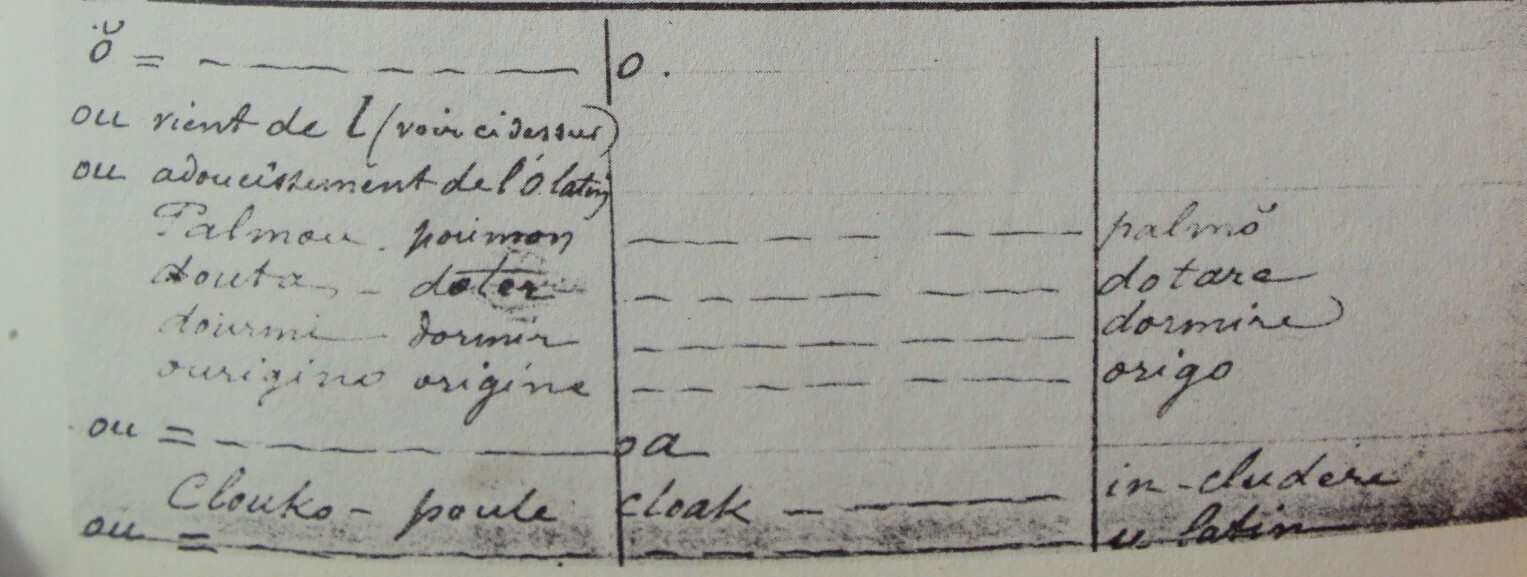 ŏ = — — — — — — — o.
ou vient de l (voir ci dessus)
ou adoucissement de l'ŏ latin
Palmou - poumon — — — — — — — palmŏ
douta - doter — — — — — — — dotare
dourmi - dormir — — — — — — — dormire
ourigino origine — — — — — — — origo
ou = — — — — — — oa
Clouko - poule cloak — — — in-cludere
ou = — — — — — — — — — u latin